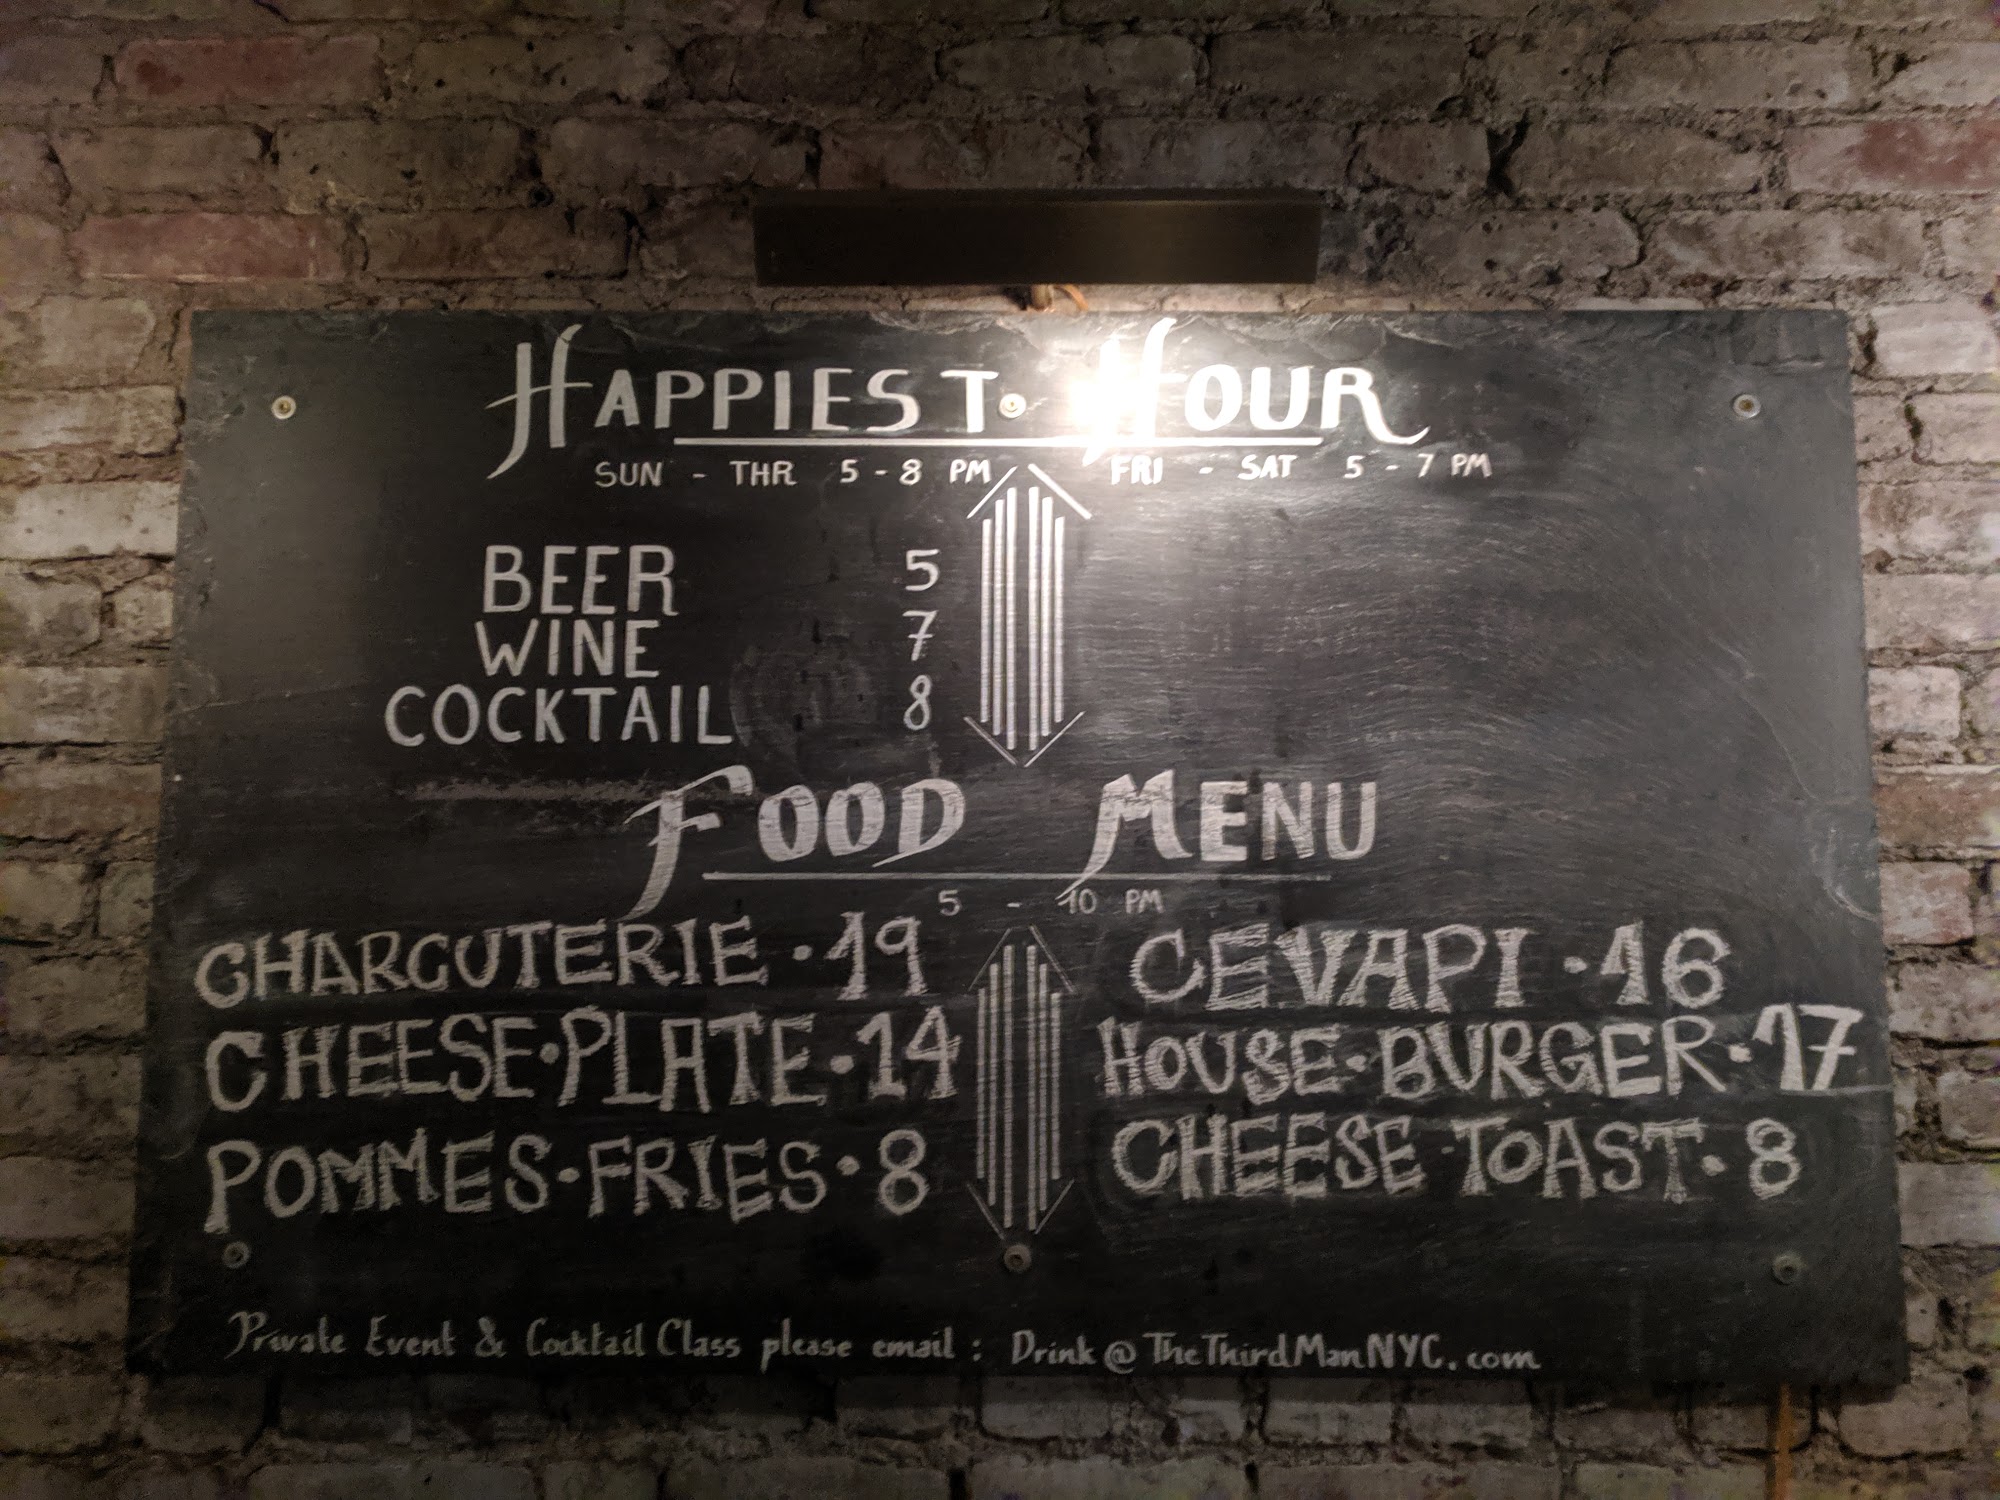 HAPPIEST HOUR
SUN - THR 5 - 8 PM FRI - SAT 5 - 7 PM
BEER 5
WINE 7
COCKTAIL 8
FOOD MENU
5 - 10 PM
CHARCUTERIE · 19
CHEESE · PLATE · 14
POMMES · FRIES · 8
CEVAPI · 16
HOUSE · BURGER · 17
CHEESE · TOAST · 8
Private Event & Cocktail Class please email : Drink@TheThirdManNYC.com